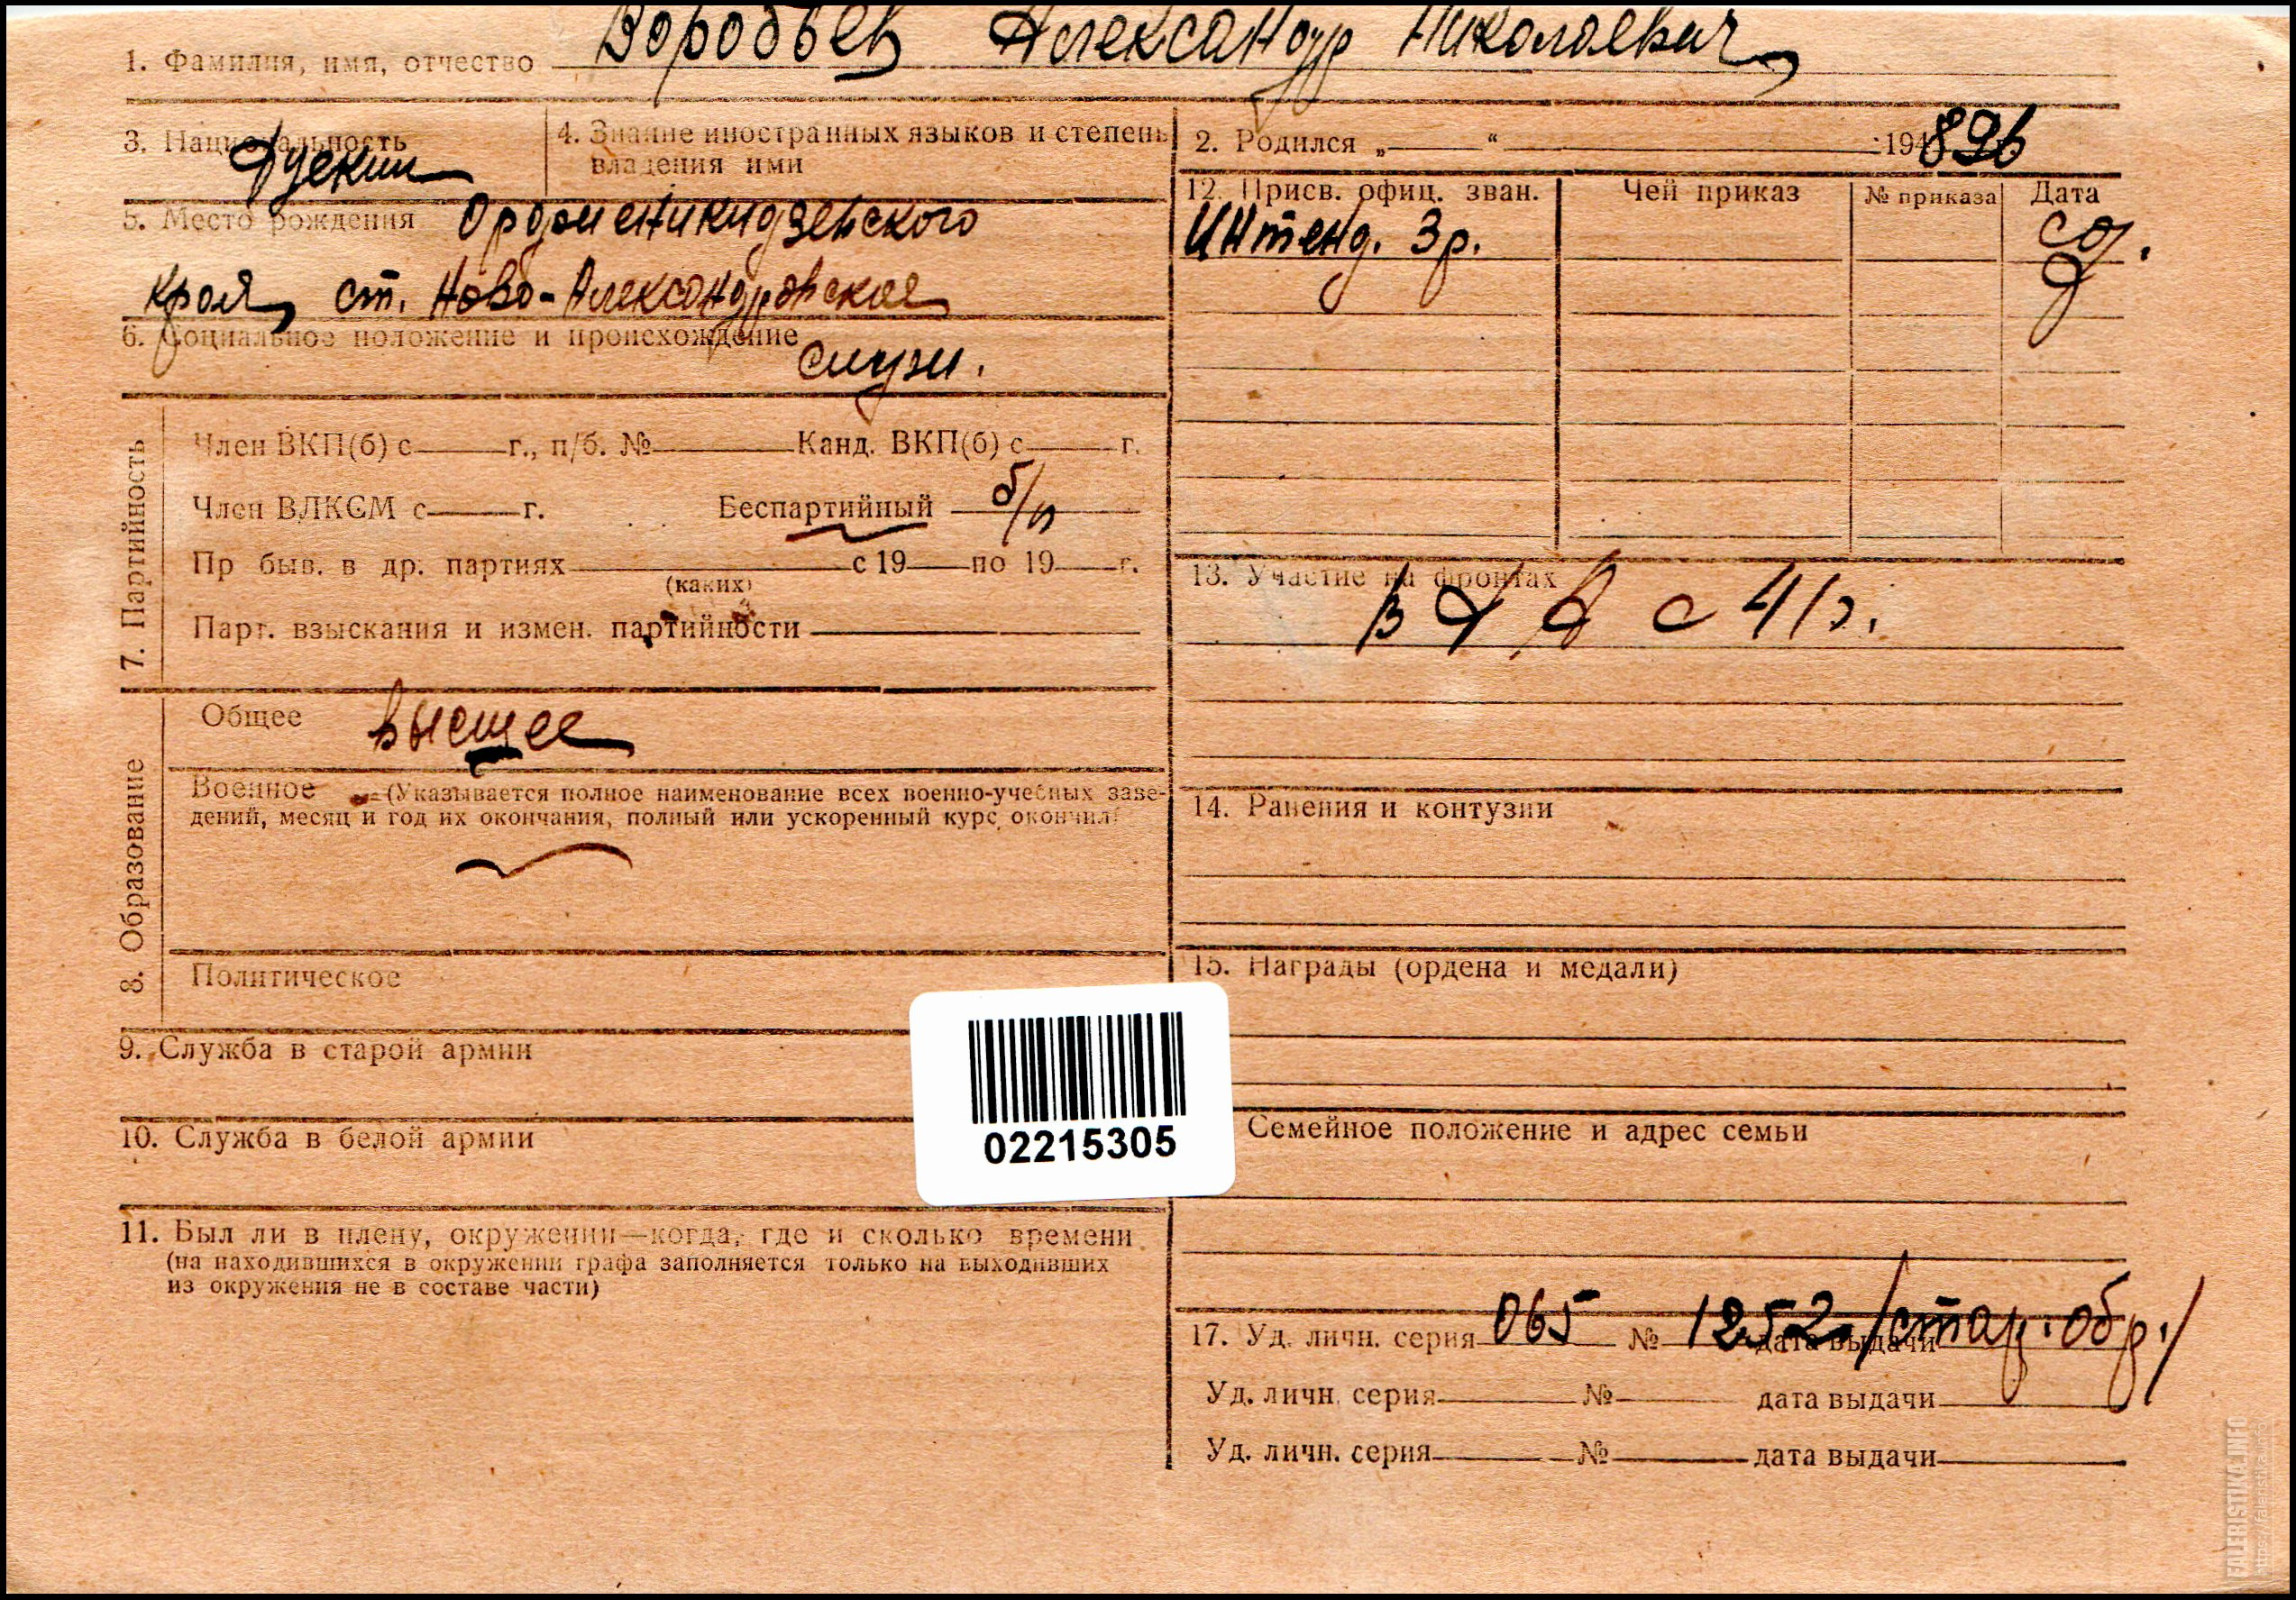 1. Фамилия, имя, отчество Воробьев Александр Николаевич
3. Национальность Русский
4. Знание иностранных языков и степень
владения ими
2. Родился „ “ 194 896
5. Место рождения Орджоникидзевского
края, ст. Ново-Александровская
6. Социальное положение и происхождение
служ.
12. Присв. офиц. зван. Чей приказ № приказа Дата
Интенд. 3 р.
7. Партийность
Член ВКП(б) с г., п/б. № Канд. ВКП(б) с г.
Член ВЛКСМ с г. Беспартийный б/п
Пр быв. в др. партиях с 19 по 19 г.
(каких)
Парт. взыскания и измен. партийности
13. Участие на фронтах
с 41 г.
8. Образование
Общее высшее
Военное (Указывается полное наименование всех военно-учебных заве-
дений, месяц и год их окончания, полный или ускоренный курс окончил)
Политическое
14. Ранения и контузии
15. Награды (ордена и медали)
9. Служба в старой армии
10. Служба в белой армии
02215305
Семейное положение и адрес семьи
11. Был ли в плену, окружении—когда, где и сколько времени
(на находившихся в окружении графа заполняется только на выходивших
из окружения не в составе части)
17. Уд. личн. серия 065 № 1252 дата выдачи /стар. обр./
Уд. личн. серия № дата выдачи
Уд. личн. серия № дата выдачи
FALERISTIKA.INFO
https://faleristika.info